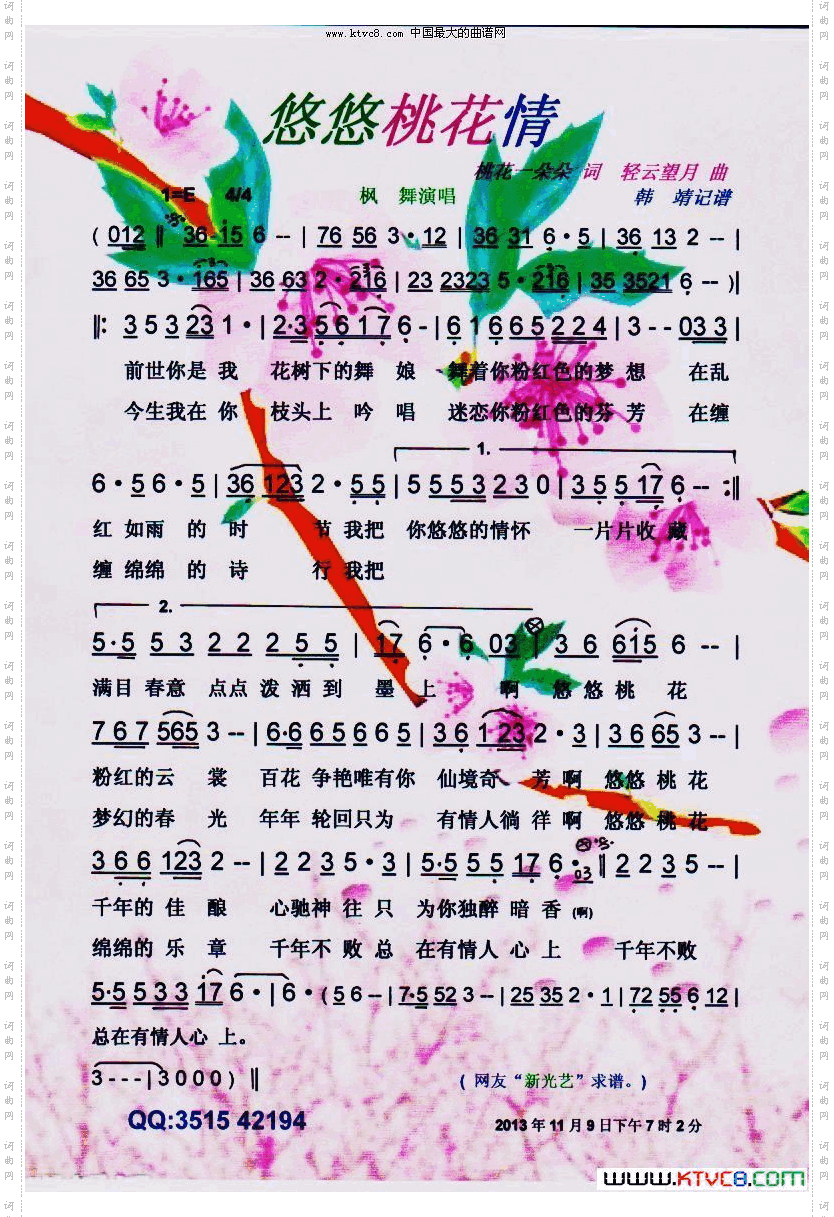 www.ktvc8.com 中国最大的曲谱网
悠悠桃花情
桃花一朵朵 词 轻云望月 曲
1=E 4/4 枫 舞演唱 韩 靖记谱
( 012 ‖ 36·15 6 -- | 76 56 3·12 | 36 31 6·5 | 36 13 2 -- |
36 65 3·165 | 36 63 2·216 | 23 2323 5·216 | 35 3521 6 -- )|
‖: 3 5 3 23 1· | 2·3 5 6 1 7 6 - | 6 1 6 6 5 2 2 4 | 3 -- 03 3 |
前世你是 我 花树下的舞 娘 舞着你粉红色的梦 想 在乱
今生我在 你 枝头上 吟 唱 迷恋你粉红色的芬 芳 在缠
1.
6·5 6·5 | 36 123 2·5 5 | 5 5 5 3 2 3 0 | 3 5 5 17 6 -- :‖
红 如雨 的 时 节 我把 你悠悠的情怀 一片片收 藏
缠 绵绵 的 诗 行 我把
2.
5·5 5 3 2 2 2 5 5 | 17 6·6 03 | 3 6 615 6 -- |
满目 春意 点点 泼 洒 到 墨 上 啊 悠 悠 桃 花
7 6 7 565 3 -- | 6·6 6 5 6 6 5 | 3 6 1 23 2·3 | 3 6 65 3 -- |
粉红的云 裳 百花 争艳唯有你 仙境奇 芳 啊 悠悠 桃 花
梦幻的春 光 年年 轮回只为 有情人徜 徉 啊 悠悠 桃 花
3 6 6 123 2 -- | 2 2 3 5·3 | 5·5 5 5 17 6·03 ‖ 2 2 3 5 -- |
千年的 佳 酿 心驰神 往 只 为你独醉 暗 香 (啊)
绵绵的 乐 章 千年不 败 总 在有情人 心 上 千年不败
5·5 5 3 3 17 6· | 6· ( 5 6 -- | 7·5 52 3 -- | 25 35 2·1 | 72 55 6 12 |
总在有情人心 上。
3 --- | 3 0 0 0 ) ‖ ( 网友“新光艺”求谱。)
QQ:3515 42194 2013 年 11 月 9 日下午 7 时 2 分
www.KTVC8.com
词曲网